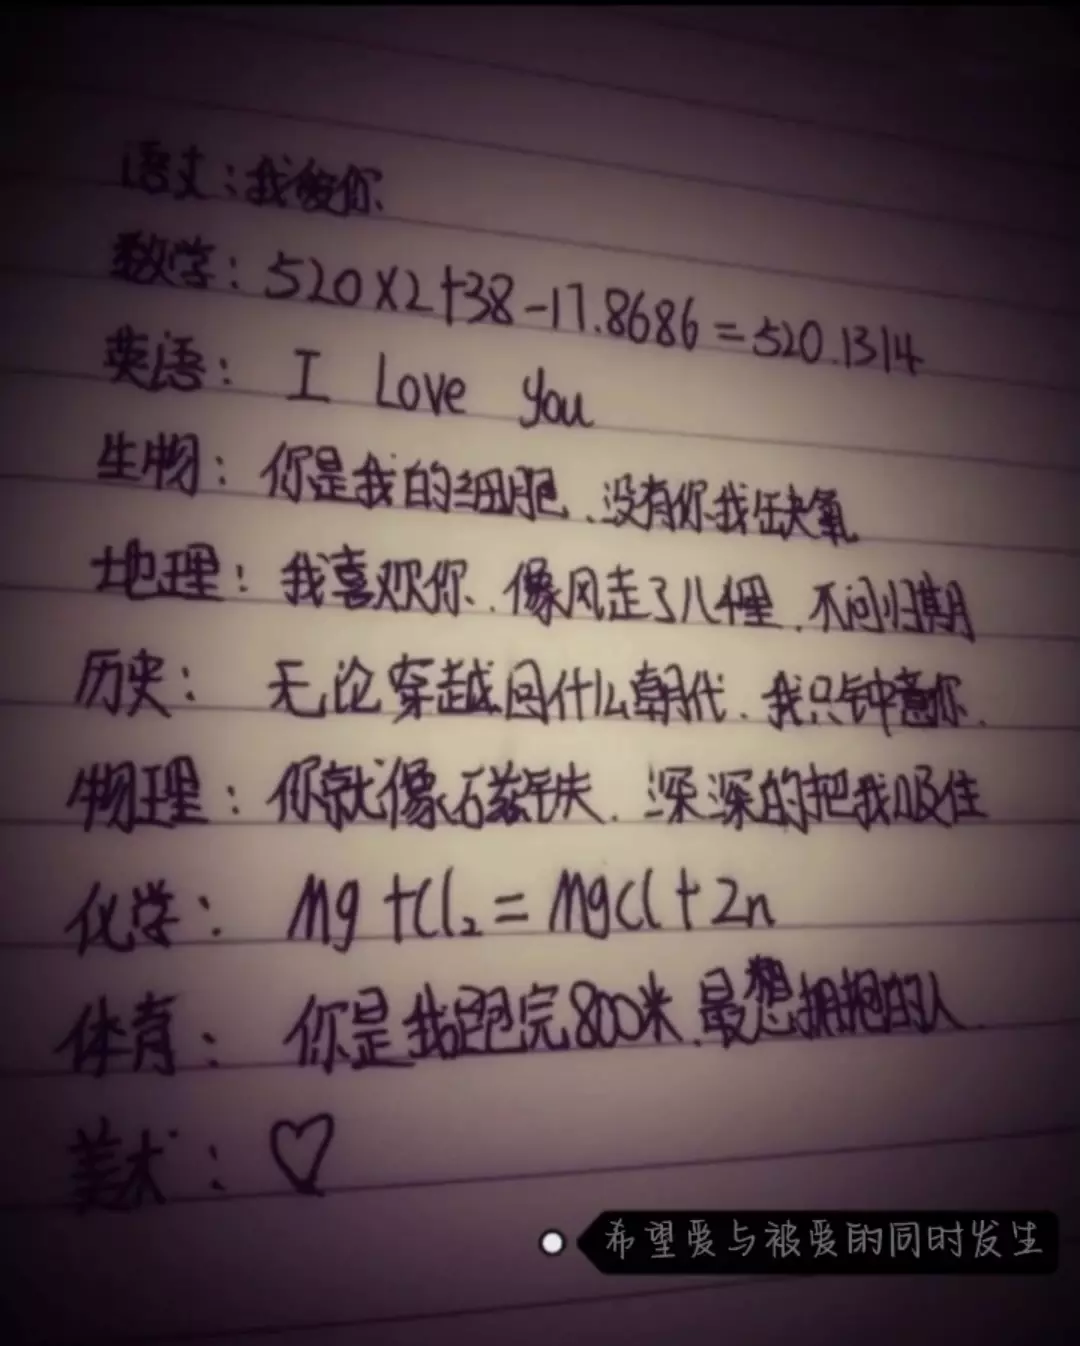 语文：我爱你
数学：520×2+38-17.8686=520.1314
英语： I Love you
生物：你是我的细胞、没有你我缺氧
地理：我喜欢你、像风走了八千里、不问归期
历史： 无论穿越回什么朝代、我只钟意你、
物理：你就像磁铁、深深的把我吸住
化学： Mg+Cl₂=MgCl+2n
体育： 你是我跑完800米、最想拥抱的人
美术：♡
希望爱与被爱的同时发生